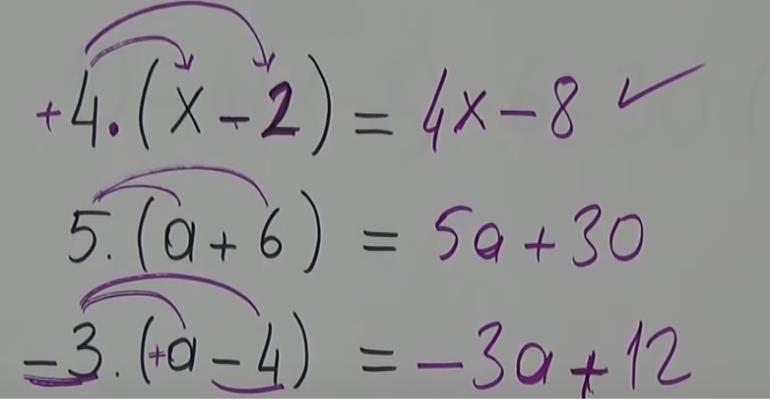 +4.(x-2) = 4x-8 ✓
5.(a+6) = 5a+30
-3.(+a-4) = -3a+12